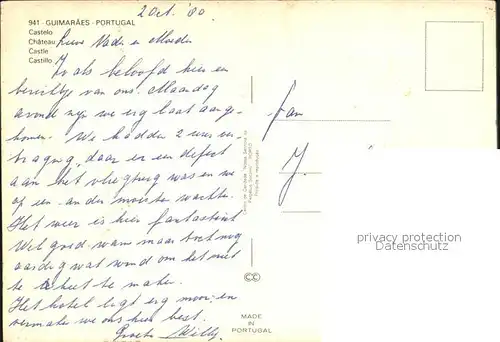 2 Oct. '80
941 - GUIMARÃES - PORTUGAL
Castelo
Château
Castle
Castillo
Lieve Vader en Moeder
Zo als beloofd hier een
berichtje van ons. Maandag
avond zijn we erg laat aange-
komen. We hadden 2 uur ver-
traging, daar er een defect
aan het vliegtuig was en we
op een ander moesten wachten.
Het weer is hier fantastisch
Wel goed warm maar toch nog
aardig wat wind om het niet
te heet te maken.
Het hotel ligt erg mooi en
vermaken we ons hier best.
Groetjes Willy
Fam
J.
privacy protection
Datenschutz
CC
MADE
IN
PORTUGAL